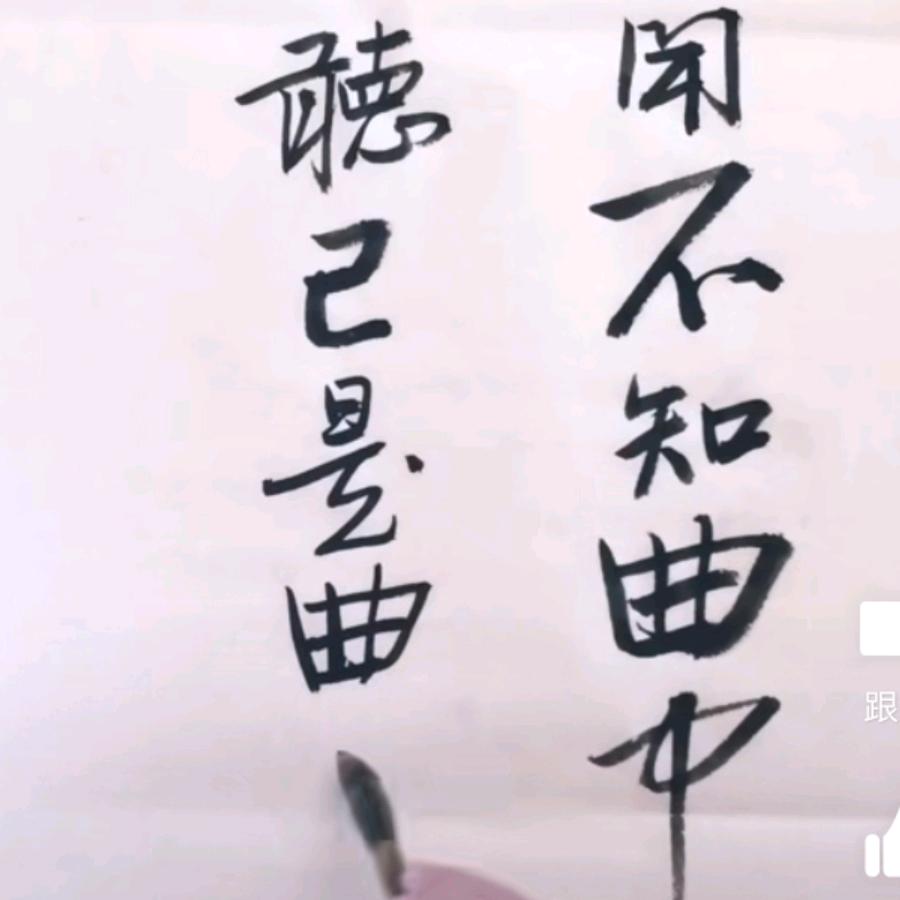 聞不知曲中
聽已是曲
跟